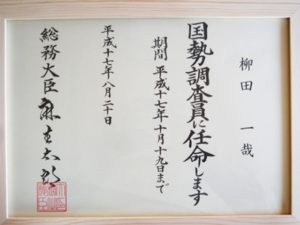 柳田 一哉
国勢調査員に任命します
期間 平成十七年十月十九日まで
平成十七年八月二十日
総務大臣 麻生太郎